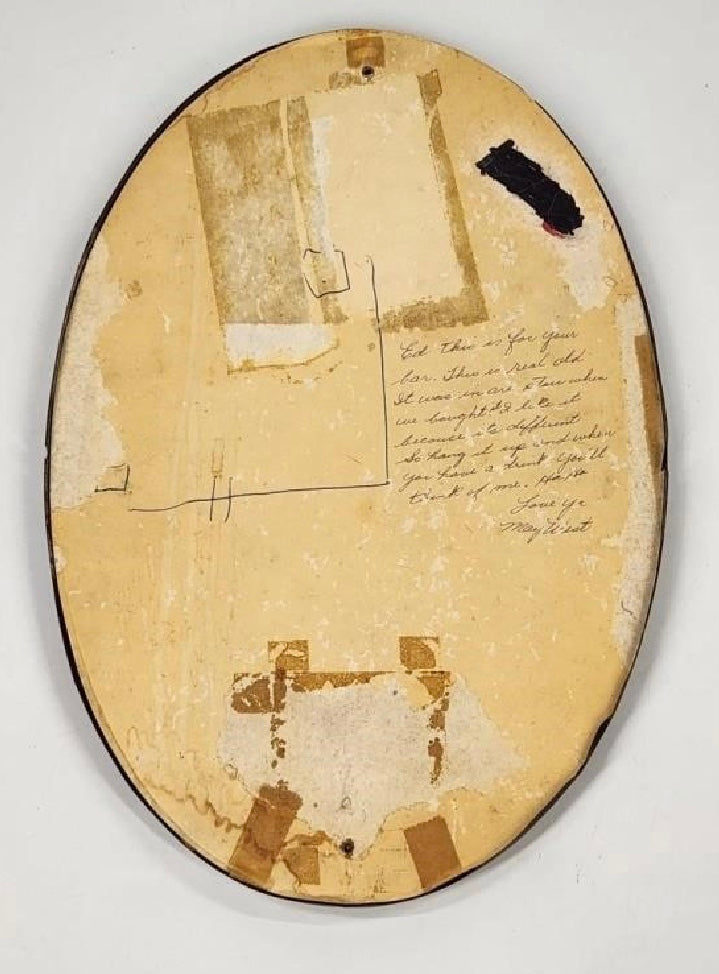 Ed this is for your
bar. This is real old
It was in are store when
we bought it I like it
because its different
So hang it up and when
you have a drink you'll
think of me. Ha Ha
Love ya
May West